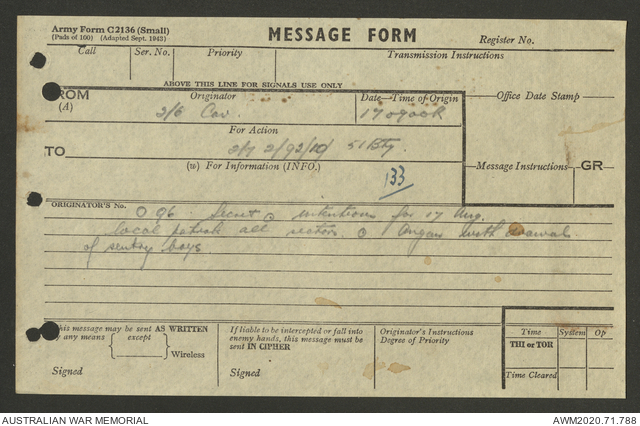 Army Form C2136 (Small)
(Pads of 100) (Adapted Sept. 1943)
MESSAGE FORM
Register No.
Call
Ser. No.
Priority
Transmission Instructions
ABOVE THIS LINE FOR SIGNALS USE ONLY
FROM
(A)
Originator
Date—Time of Origin
Office Date Stamp
2/6 Cav.
170900K
For Action
TO
2/7 2/92/10/ 51 Bty
(w) For Information (INFO.)
Message Instructions
GR
133
ORIGINATOR'S No.
O 96. Secret intentions for 17 Aug.
local patrols all sectors withdrawal
of sentry boys
This message may be sent AS WRITTEN
by any means except
Wireless
Signed
If liable to be intercepted or fall into
enemy hands, this message must be
sent IN CIPHER
Signed
Originator's Instructions
Degree of Priority
Time
System
Op
THI or TOR
Time Cleared
AUSTRALIAN WAR MEMORIAL
AWM2020.71.788